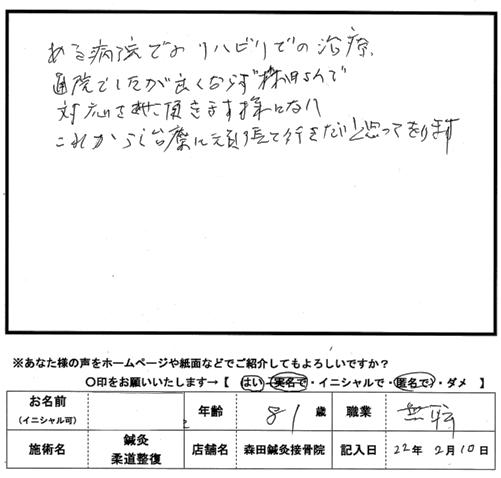 ある病院でのリハビリでの治療、
通院でしたが良くならず森田さんで
対応させて頂きます様になり
これからも治療に頑張って行きたいと思っております
※あなた様の声をホームページや紙面などでご紹介してもよろしいですか？
〇印をお願いいたします→【 はい・実名で・イニシャルで・匿名で・ダメ 】
お名前 年齢 81 歳 職業 無職
（イニシャル可）
施術名 鍼灸 柔道整復 店舗名 森田鍼灸接骨院 記入日 22年 2月10日